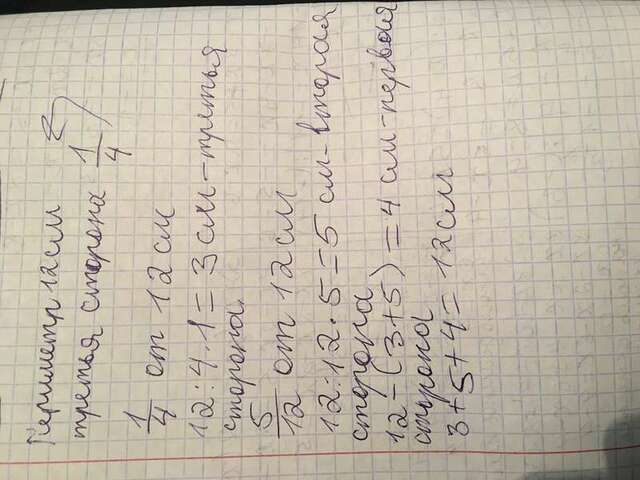 Периметр 12 см
третья сторона 1/4
1/4 от 12 см
12:4·1=3 см-третья
сторона.
5/12 от 12 см
12:12·5=5 см-вторая
сторона
12-(3+5)=4 см-первая
сторона
3+5+4=12 см